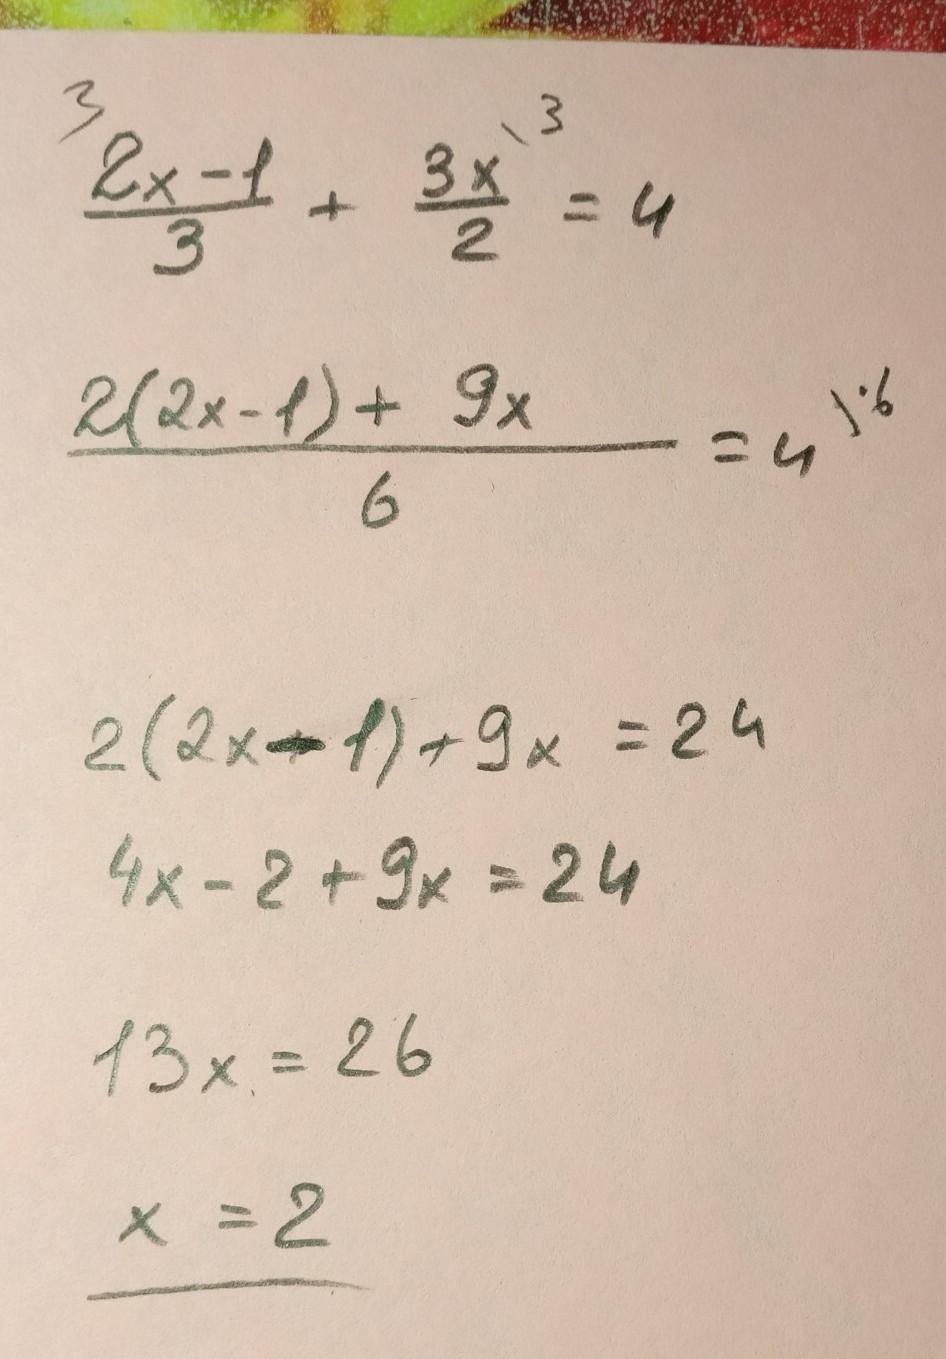 3 (2x-1)/3 + 3x/2 \3 = 4
(2(2x-1) + 9x)/6 = 4 \·6
2(2x-1)+9x = 24
4x-2+9x = 24
13x = 26
x = 2